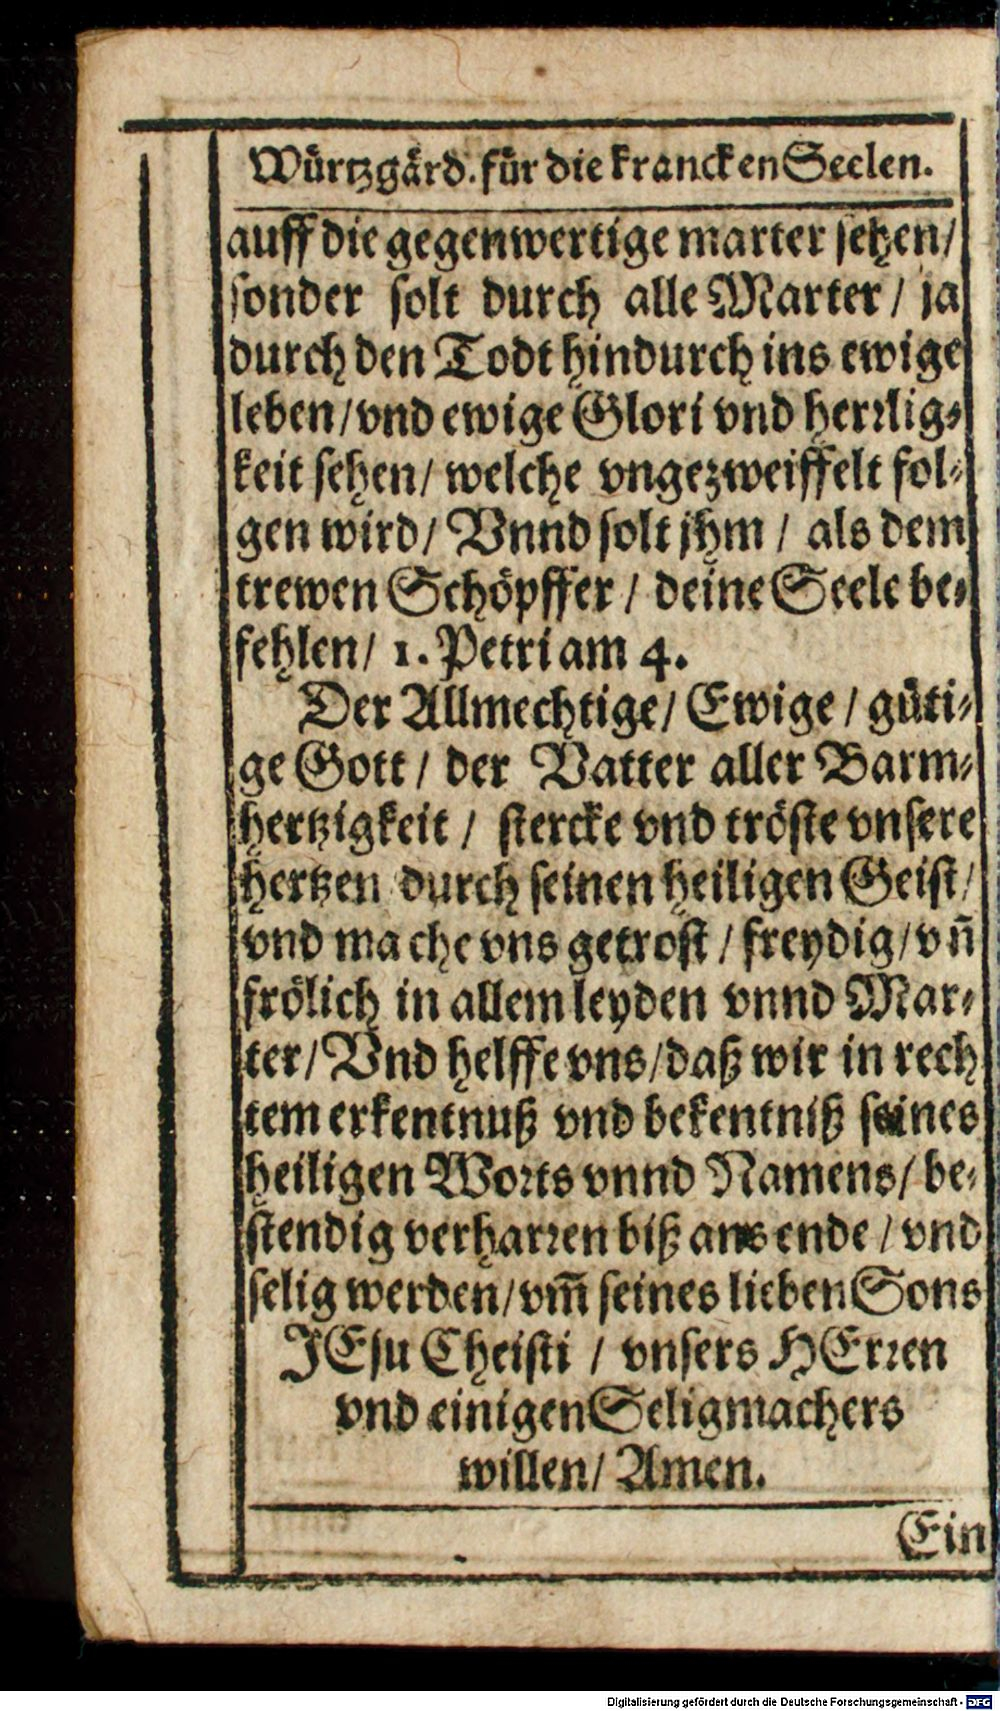 Würtzgärd. für die krancken Seelen.
auff die gegenwertige marter sehen/
sonder solt durch alle Marter/ ja
durch den Todt hindurch ins ewige
leben/ vnd ewige Glori vnd herrlig-
keit sehen/ welche vngezweiffelt fol-
gen wird/ Vnnd solt jhm/ als dem
trewen Schöpffer/ deine Seele be-
fehlen/ 1. Petri am 4.
Der Allmechtige/ Ewige/ güti-
ge Gott/ der Vatter aller Barm-
hertzigkeit/ stercke vnd tröste vnsere
hertzen durch seinen heiligen Geist/
vnd mache vns getrost/ freydig/ vn̄
frölich in allem leyden vnnd Mar-
ter/ Vnd helffe vns/ daß wir in rech
tem erkentnuß vnd bekentniß seines
heiligen Worts vnnd Namens/ be-
stendig verharren biß ans ende/ vnd
selig werden/ vm̄ seines lieben Sons
JEsu Cheisti/ vnsers HErren
vnd einigen Seligmachers
willen/ Amen.
Ein
Digitalisierung gefördert durch die Deutsche Forschungsgemeinschaft - DFG